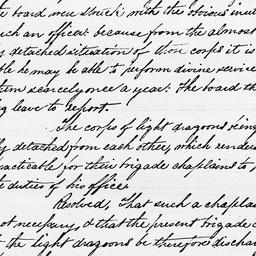 board were struck with the obvious inut
such an officer because from the almost
ly detached situation of those corps it is
ble he may be able to perform divine service
them scencely once a year: The board th
leave to report.
The corps of light dragoons being
ly detached from each other, which render
practicable for their brigade chaplains to p
e duties of his office
Resolved, That such a chaplai
not necessary, & that the present brigade c
the light dragoons be therefore dischar